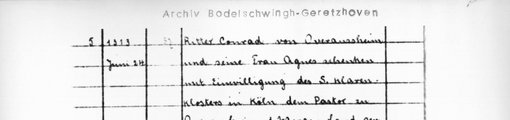 Archiv Bodelschwingh-Geretzhoven
5 1313 Ritter Conrad von Overaussheim
Juni 24 und seine Frau Agnes schenken
mit Einwilligung des S. Klaren-
Klosters in Köln dem Pastor zu